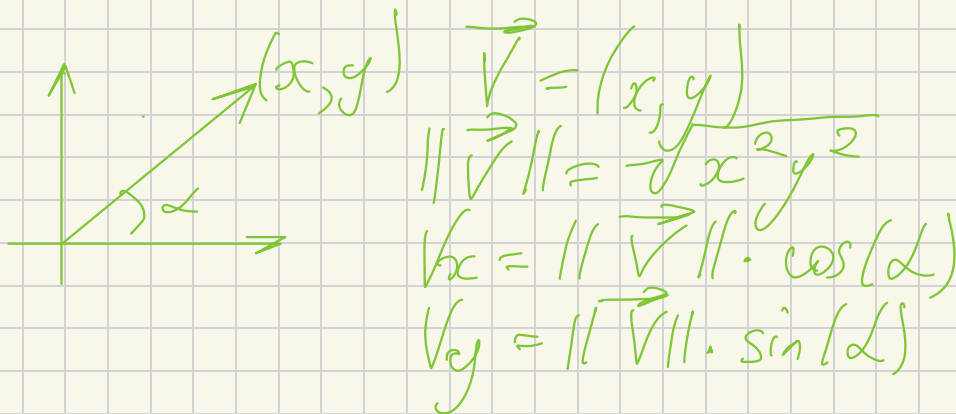 (x,y)
α
V⃗ = (x,y)
||V⃗|| = √x²y²
Vx = ||V⃗||· cos(α)
Vy = ||V⃗||· sin(α)